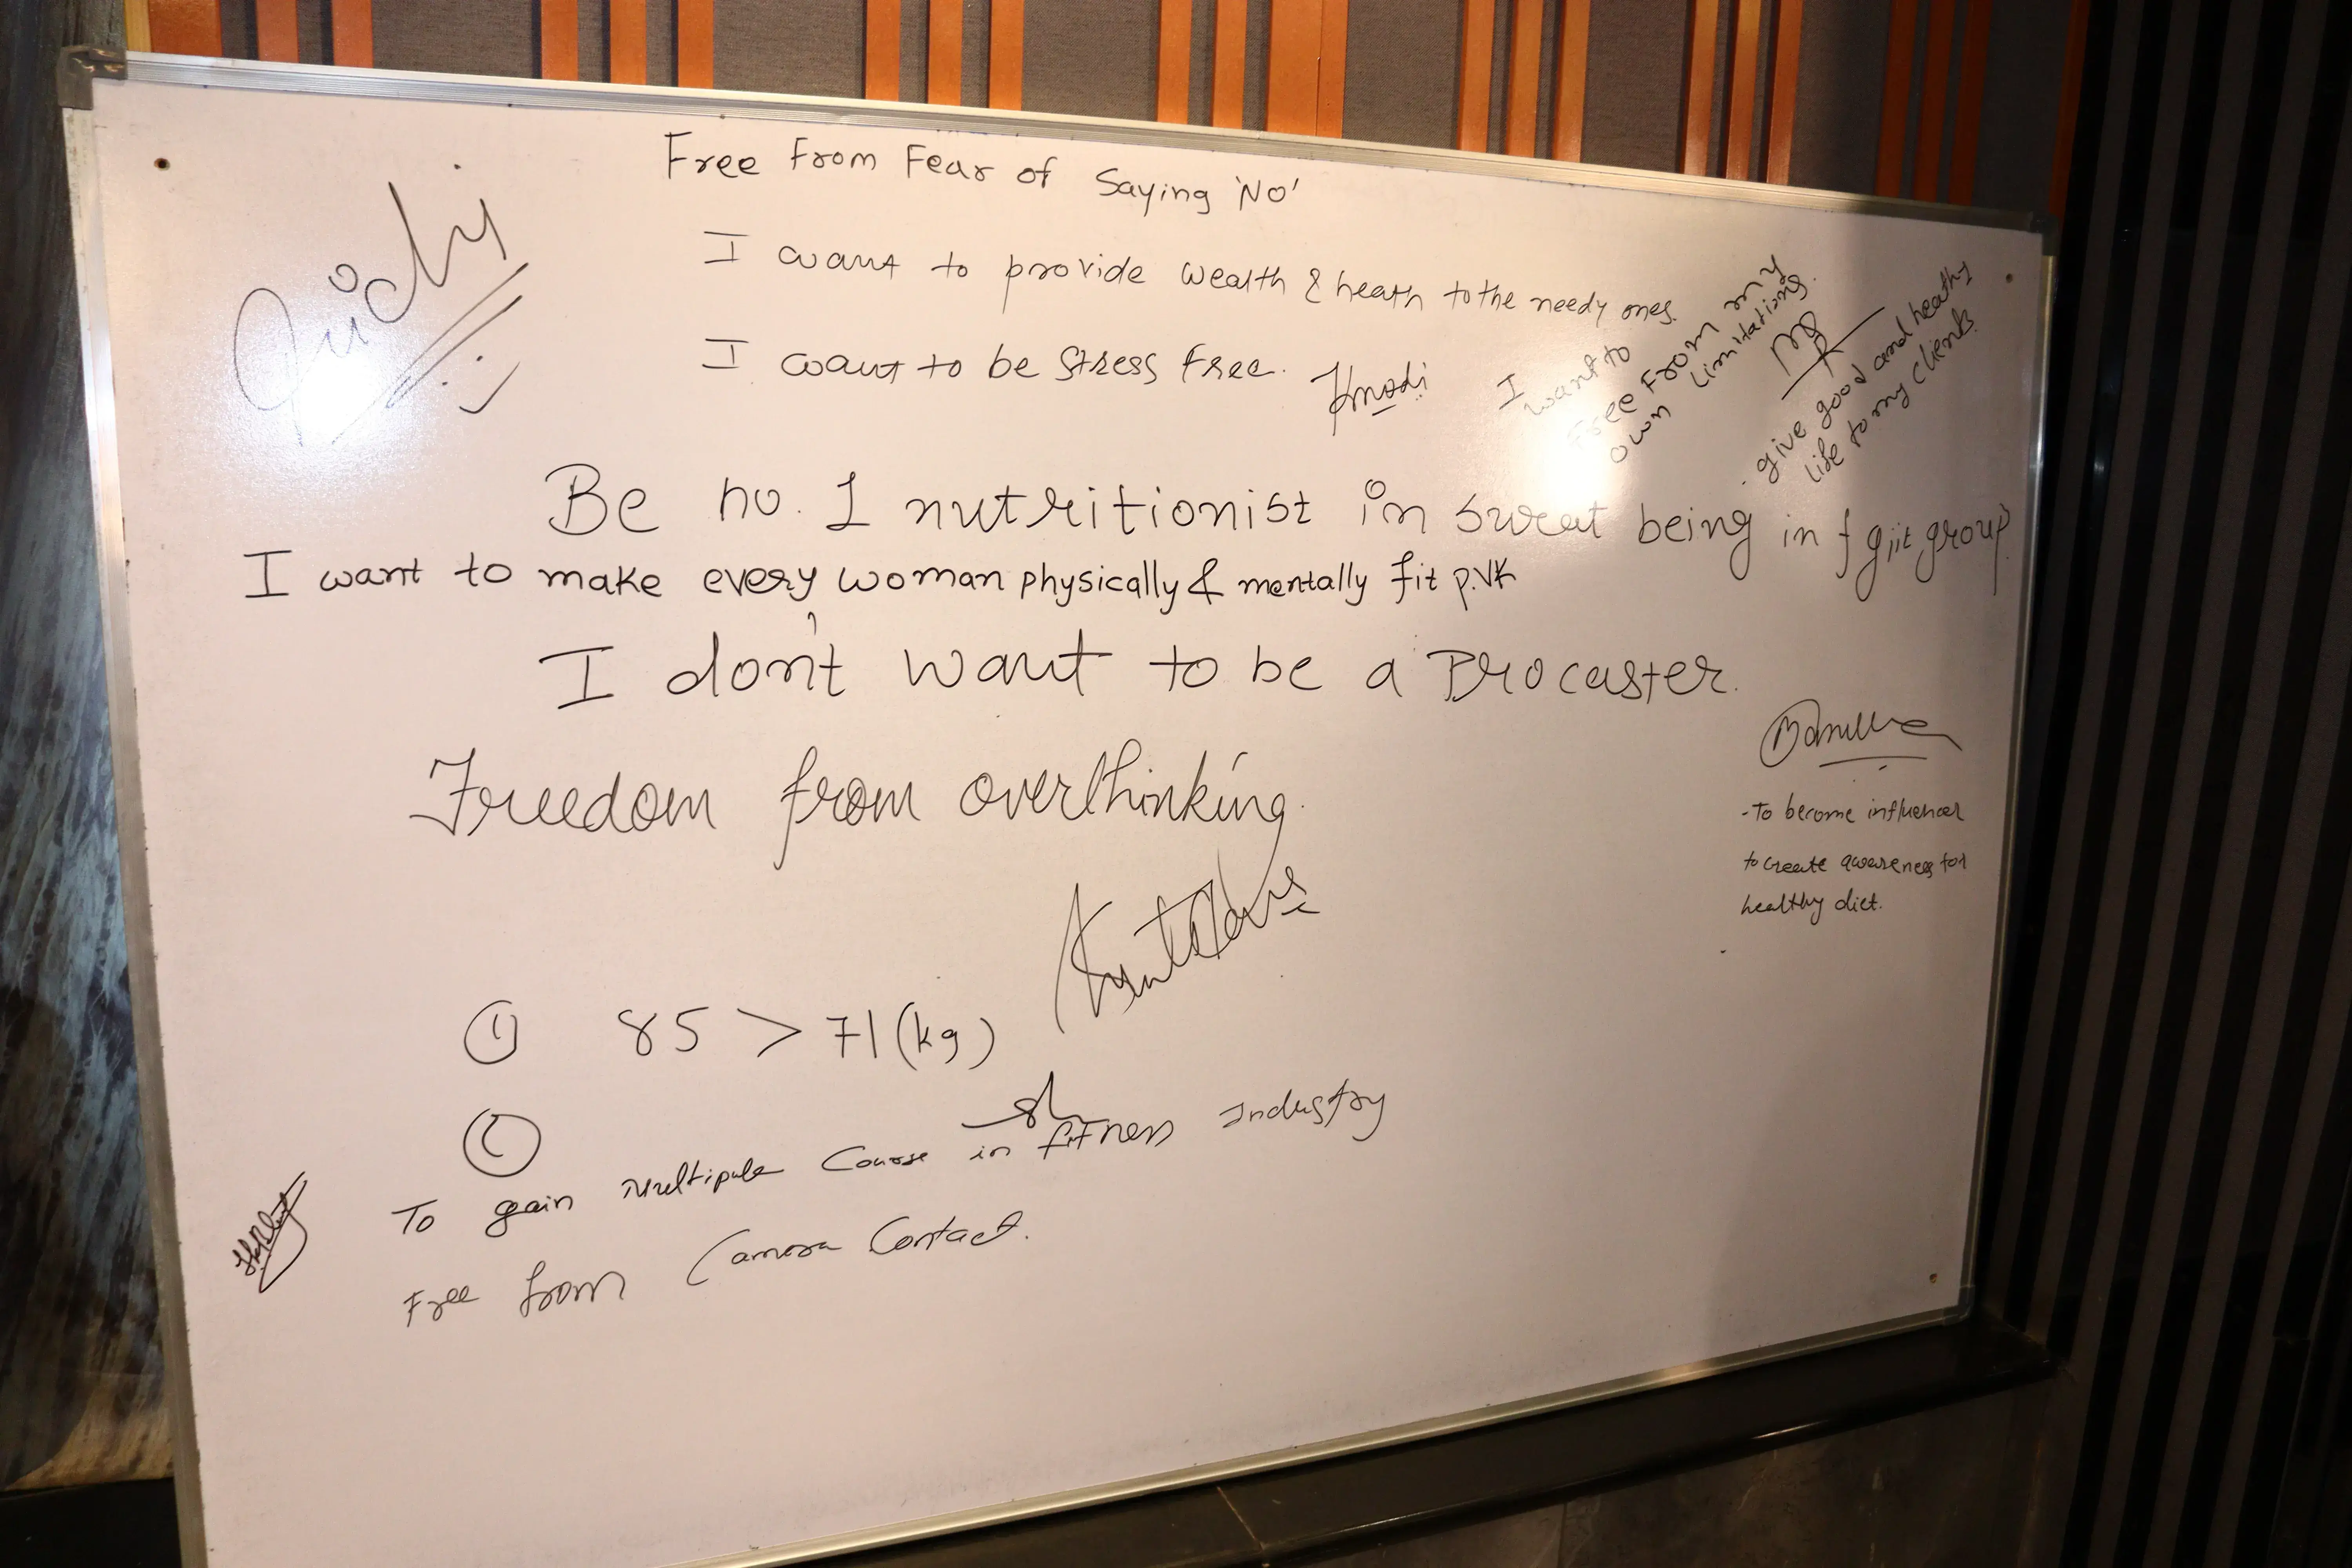 Free From Fear of Saying 'NO'
I want to provide wealth & heath to the needy ones.
I want to be Stress free. Kmodi
I
want to
Free From my
own limitations.
give good and heathy
life to my clients.
Be no. 1 nutritionist in surat being in fgiit group
I want to make every woman physically & mentally fit p.VK
I don't want to be a Procaster.
Freedom from overthinking.
- To become influencer
to create awareness for
healthy diet.
1 85 > 71 (kg)
To gain Multipule Course in fitness Industry
Free from Camera Contact.